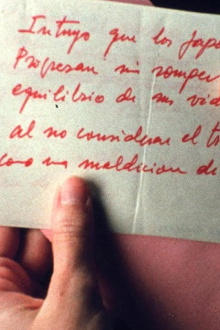 Intuyo que los
Progresan sin romper
equilibrio de su
al no considerar el
como una maldicion de